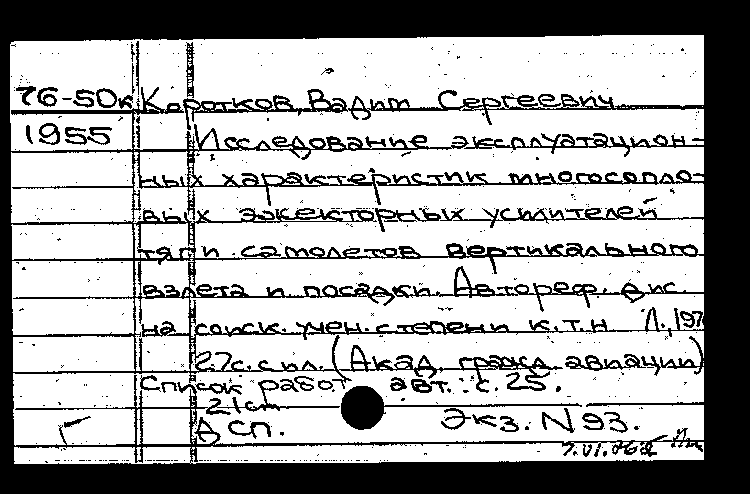 76-50к Коротков, Вадим Сергеевич
1955 Исследование эксплуатацион-
ных характеристик многосопло-
вых эжекторных усилителей
тяги самолетов вертикального
взлета и посадки. Автореф. дис.
на соиск. учен. степени к.т.н Л., 197
27с. с ил. (Акад. гражд. авиации)
Список работ авт.: с. 25.
21cm
ДСП. Экз. N 93.
7.VI.76г.